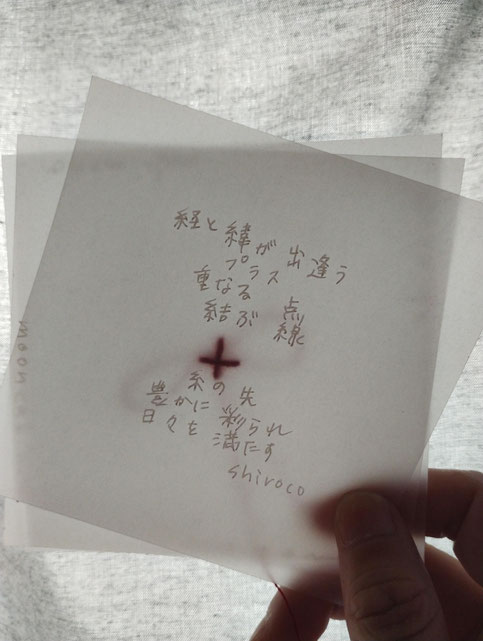 経と緯が出逢う
プラス
重なる点
結ぶ線
糸の先
豊かに彩られ
日々を満たす
shiroco
moon